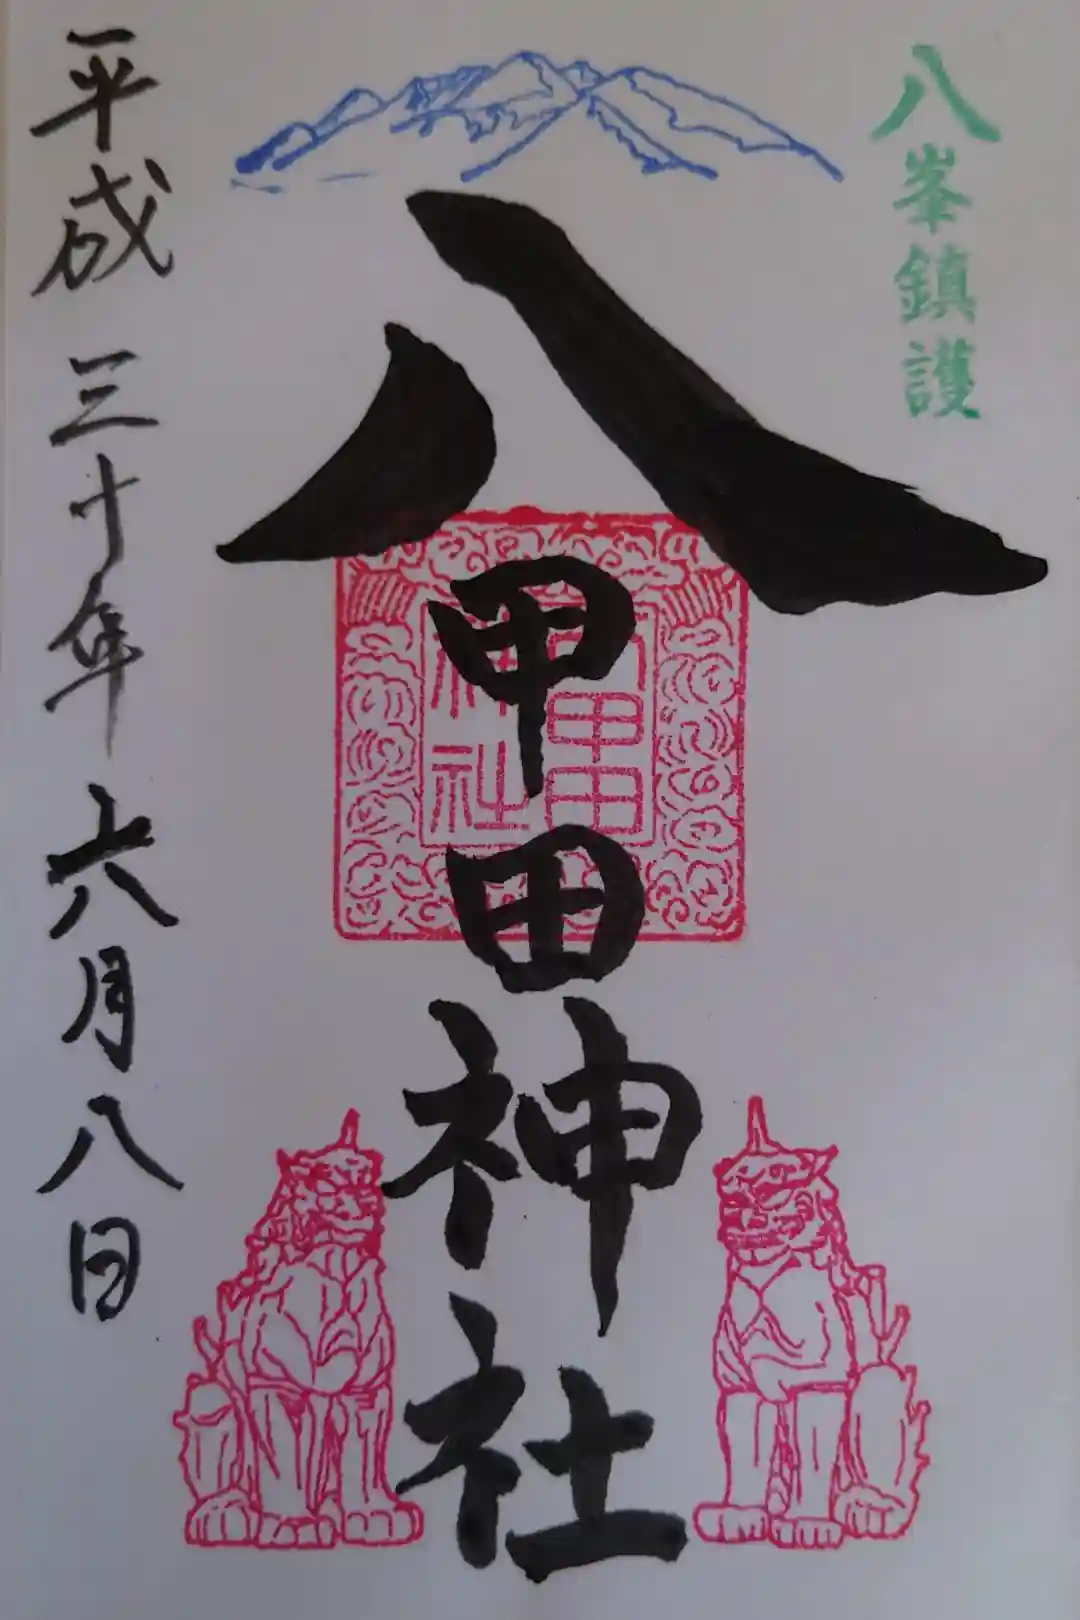 八峯鎮護
八甲田神社
八甲田
神社
平成三十年六月八日